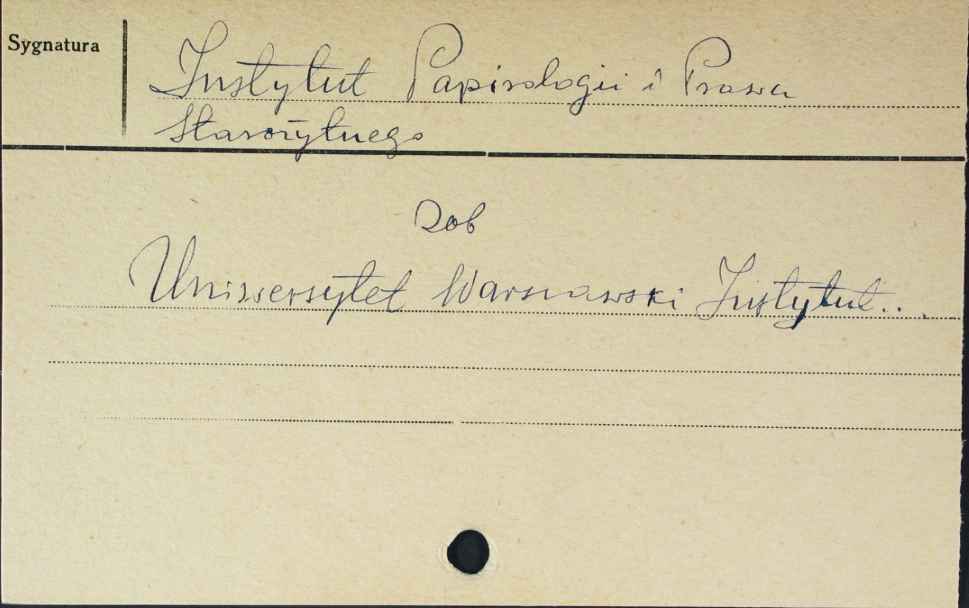 Sygnatura
Instytut Papirologii i Prawa
Starożytnego
Zob
Uniwersytet Warszawski Instytut...